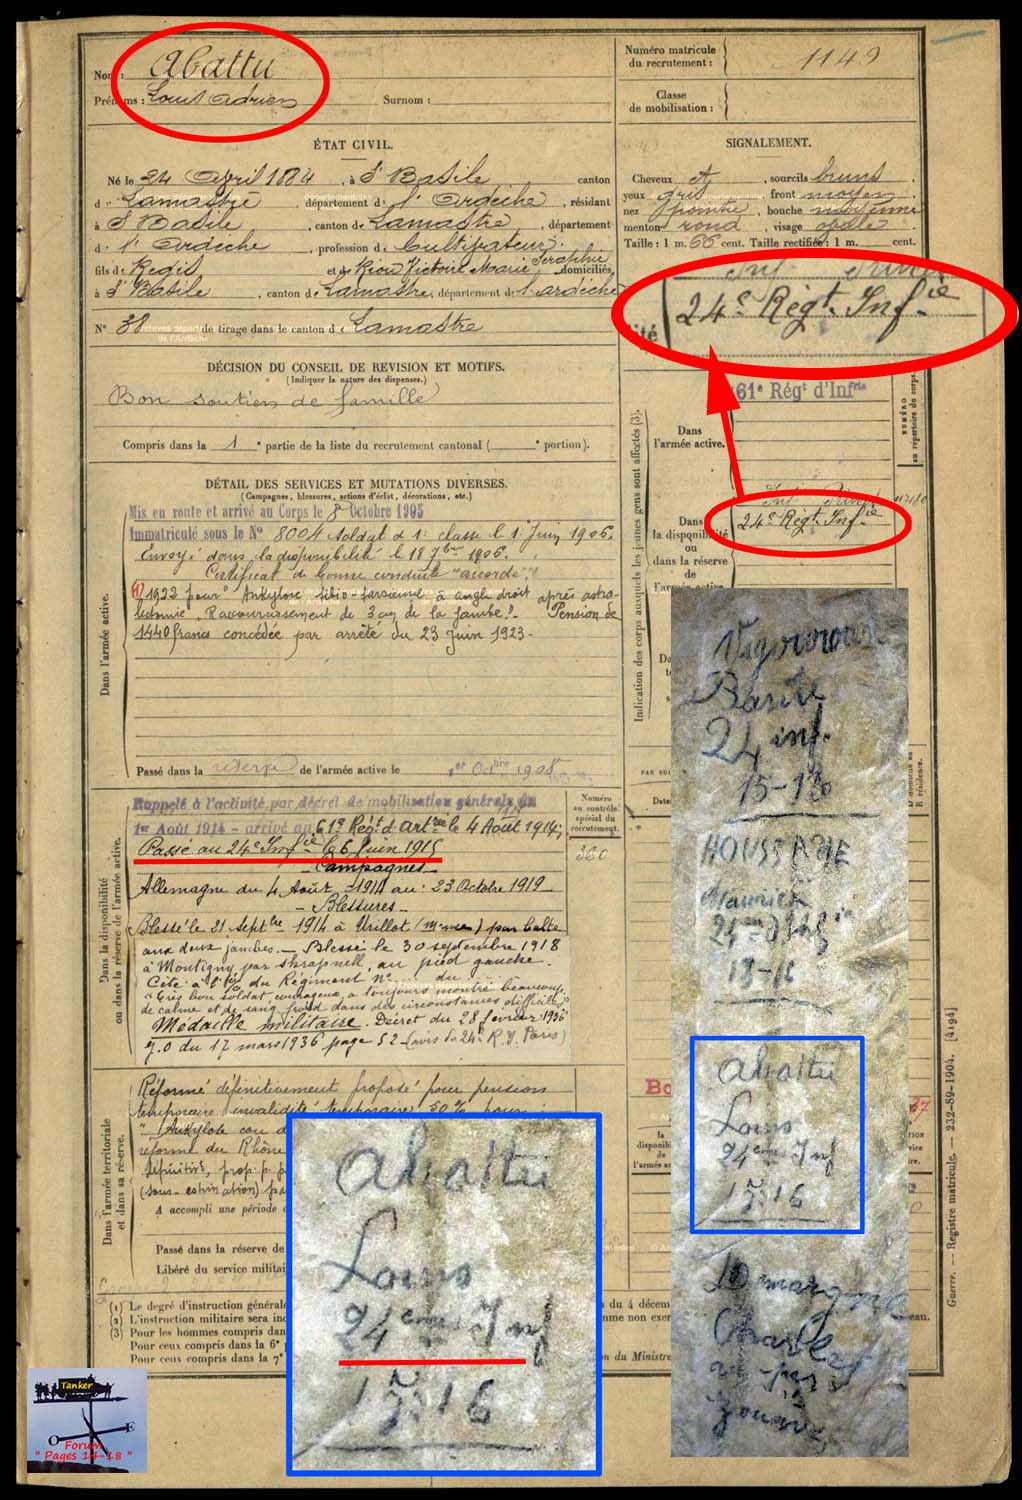 Nom : Abattu
Prénoms : Louis Adrien Surnom :
Numéro matricule
du recrutement : 1149
Classe
de mobilisation :
ÉTAT CIVIL.
Né le 24 Avril 1884, à St Basile canton
de Lamastre, département de l'Ardèche, résidant
à St Basile, canton de Lamastre, département
d. l'Ardèche, profession de Cultivateur.
fils de Regis et de Riou Victoire Marie Seraphie domiciliés
à St Basile, canton de Lamastre, département de l'Ardèche
N° 38 de tirage dans le canton de Lamastre
SIGNALEMENT.
Cheveux et, sourcils bruns
yeux gris, front moyen
nez pointu, bouche moyenne
menton rond, visage ovale
Taille : 1 m. 66 cent. Taille rectifiée : 1 m. cent.
24e Régt. Infie
ité
DÉCISION DU CONSEIL DE REVISION ET MOTIFS.
(Indiquer la nature des dispenses.)
Bon soutien de famille
Compris dans la 1e partie de la liste du recrutement cantonal ( e portion).
DÉTAIL DES SERVICES ET MUTATIONS DIVERSES.
(Campagnes, blessures, actions d'éclat, décorations, etc.)
Dans l'armée active.
Mis en route et arrivé au Corps le 8 Octobre 1905
Immatriculé sous le No 8004 Soldat de 1e classe le 1e Juin 1906.
Envoyé dans la disponibilité le 18 7bre 1906.
Certificat de bonne conduite "accordé".
(1) 1922 pour Ankylose tibio-tarsienne à angle droit après astra-
lectomie. Raccourcissement de 3 cm de la jambe D. Pension de
1440 francs concédée par arrêté du 23 Juin 1923-
Passé dans la réserve de l'armée active le 1er Octbre 1908
Indication des corps auxquels les jeunes gens sont affectés (3).
Dans
l'armée active.
61e Régt d'Infrie
NUMÉRO
au répertoire du corps.
Dans
la disponibilité
ou
dans la réserve
de
l'armée active
24e Régt. Infie
Dans la disponibilité
ou dans la réserve de l'armée active.
Rappelé à l'activité par décret de mobilisation générale du
1er Août 1914 - arrivé au 61e Régt d'Artrie le 4 Août 1914;
Passé au 24e Infie le 6 Juin 1915
Campagnes
Allemagne du 4 Août 1914 au : 23 Octobre 1919
- Blessures -
Blessé le 21 Septbre 1914 à Vrillot (Marne) par balle
aux deux jambes. - Blessé le 30 septembre 1918
à Montigny par shrapnell, au pied gauche.
Cité à l'O. du Régiment No du
"Très bon soldat, courageux, a toujours montré beaucoup
de calme et de sang froid dans des circonstances difficiles"
Médaille militaire. Décret du 28 février 1936
J.O du 17 mars 1936 page 52 (avis du 24e R.I. Paris)
Numéro
au contrôle
spécial du
recrutement.
360
Dans l'armée territoriale
et dans sa réserve.
Réformé définitivement proposé pour pension
temporaire invalidité temporaire 50% pour
"Ankylose cou d
réforme du Rhône
définitive, prop. p. p
(sous-estimation) pa
A accompli une période d
Passé dans la réserve de
Libéré du service militai
(1) Le degré d'instruction générale
(2) L'instruction militaire sera ind
(3) Pour les hommes compris dan
Pour ceux compris dans la 6e
Pour ceux compris dans la 7e
Abattu
Louis
24eme Inf
1 7 16
Vigouroux
24 inf.
HOUSSAPIE
Maurice
18-16
Abattu
Louis
24eme Inf
1 7 16
Charles
zouaves
Guerre. — Registre matricule. — 232-89-1904. [4494]
Tanker
O E
Forum
" Pages 14-18 "